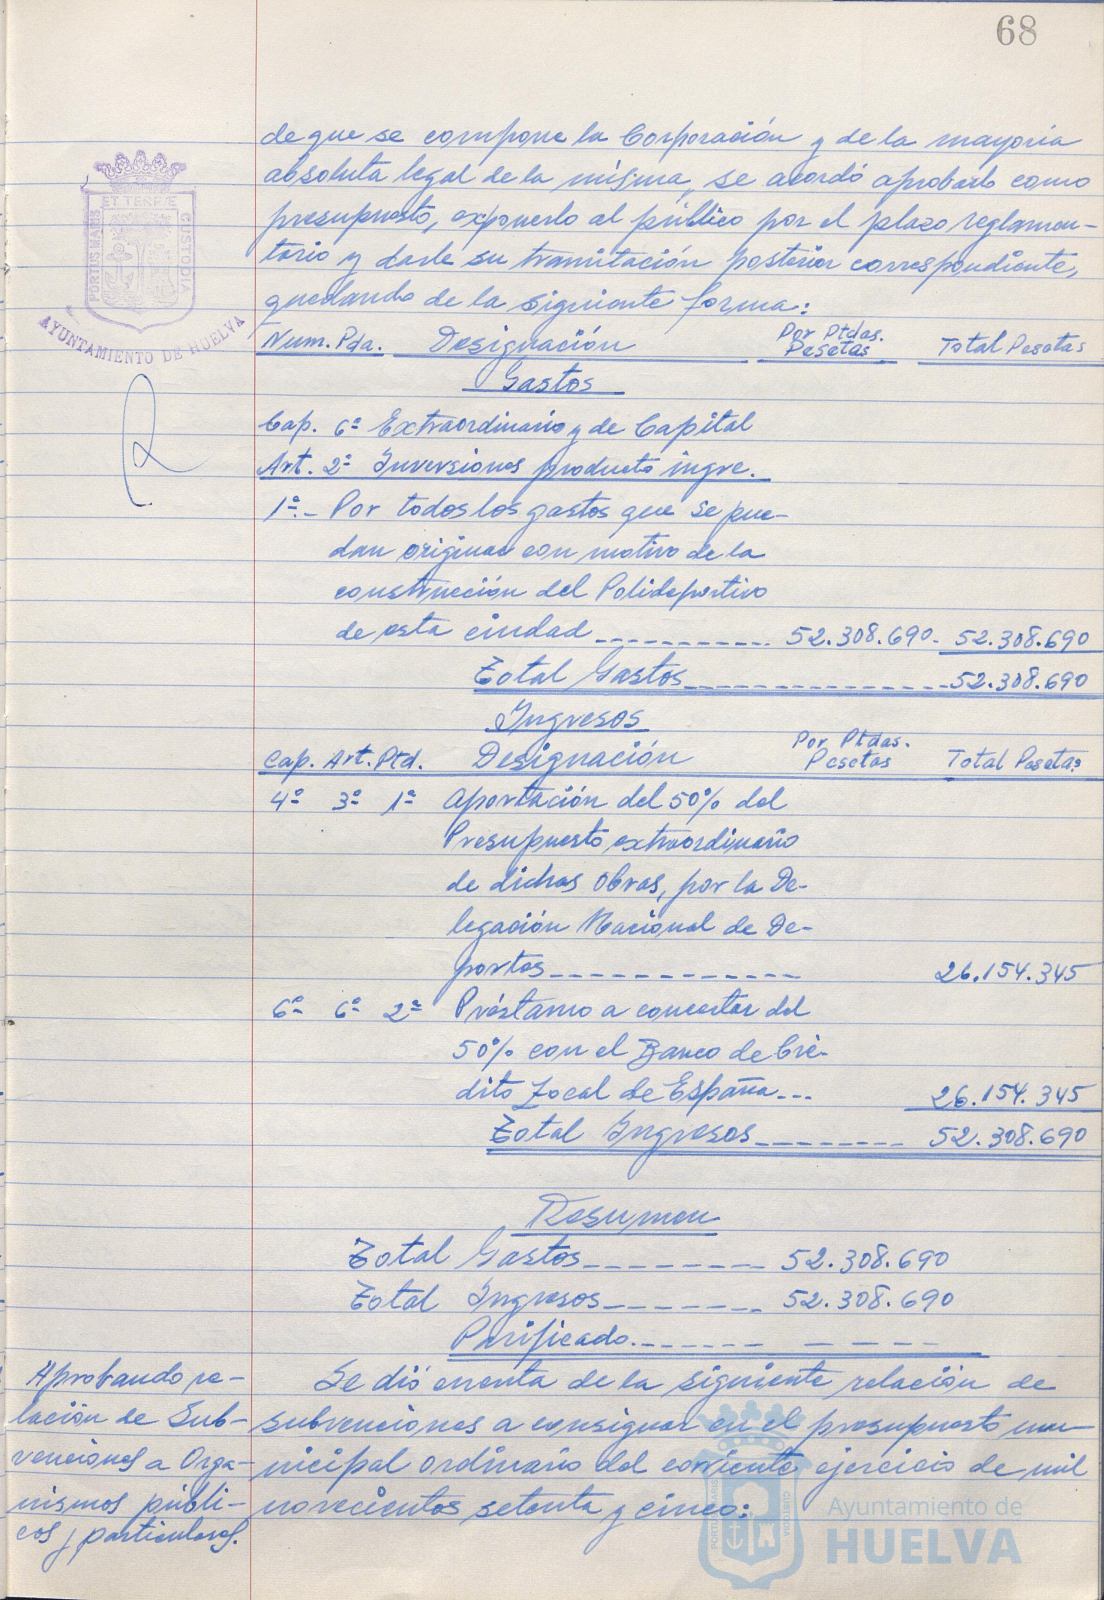 68
de que se compone la Corporación y de la mayoría
absoluta legal de la misma, se acordó aprobarlo como
presupuesto, exponerlo al público por el plazo reglamen-
tario y darle su tramitación posterior correspondiente,
quedando de la siguiente forma:
PORTUS MARIS ET TERRÆ CUSTODIA
AYUNTAMIENTO DE HUELVA
Num. Pda. Designación Por Ptdas. Pesetas Total Pesetas
Gastos
Cap. 6º Extraordinario y de Capital
Art. 2º Inversiones producto ingre.
1º.- Por todos los gastos que se pue-
dan originar con motivo de la
construcción del Polideportivo
de esta ciudad ---------- 52.308.690- 52.308.690
Total Gastos ---------- 52.308.690
Ingresos
Cap. Art. Ptd. Designación Por Ptdas. Pesetas Total Pesetas
4º 3º 1º Aportación del 50% del
Presupuesto extraordinario
de dichas Obras, por la De-
legación Nacional de De-
portes ------------- 26.154.345
6º 6º 2º Préstamo a concertar del
50% con el Banco de Cré-
dito Local de España --- 26.154.345
Total Ingresos --------- 52.308.690
Resumen
Total Gastos -------- 52.308.690
Total Ingresos ------- 52.308.690
Parificado ------ — — — —
Aprobando re-
lación de Sub-
venciones a Orga-
nismos públi-
cos y particulares.
Se dió cuenta de la siguiente relación de
subvenciones a consignar en el presupuesto mu-
nicipal ordinario del corriente ejercicio de mil
novecientos setenta y cinco:
PORTUS MARIS CUSTODIA
Ayuntamiento de
HUELVA